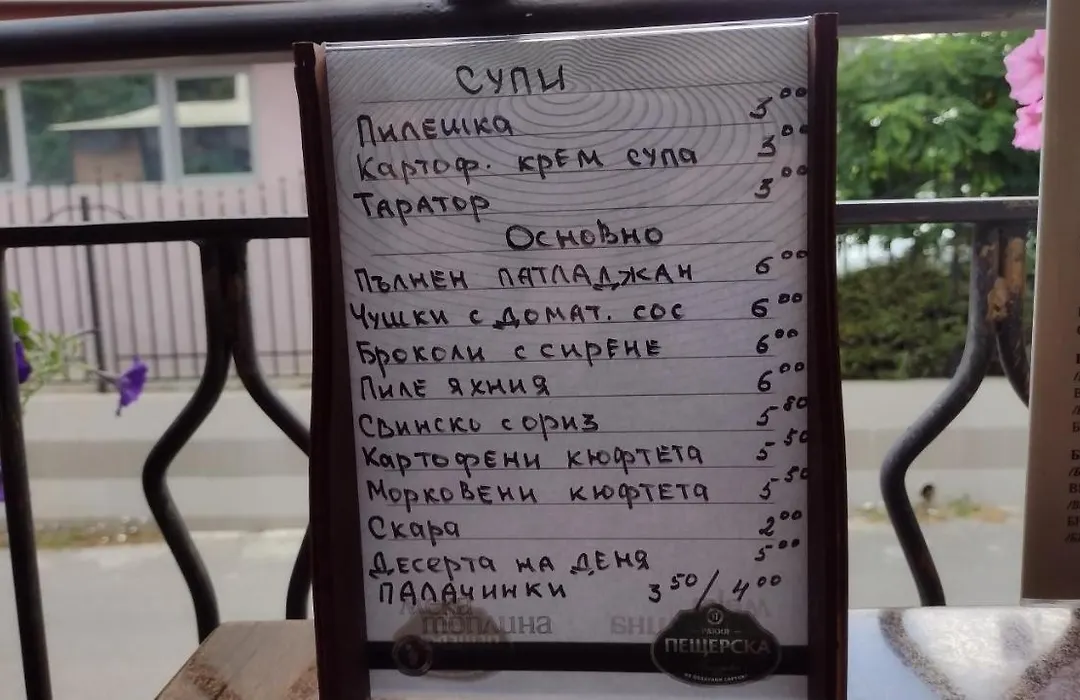 СУПИ
ПИЛЕШКА 3⁰⁰
КАРТОФ. КРЕМ СУПА 3⁰⁰
ТАРАТОР 3⁰⁰
ОСНОВНО
ПЪЛНЕН ПАТЛАДЖАН 6⁰⁰
ЧУШКИ С ДОМАТ. СОС 6⁰⁰
БРОКОЛИ С СИРЕНЕ 6⁰⁰
ПИЛЕ ЯХНИЯ 6⁰⁰
СВИНСКО С ОРИЗ 5⁸⁰
КАРТОФЕНИ КЮФТЕТА 5⁵⁰
МОРКОВЕНИ КЮФТЕТА 5⁵⁰
СКАРА 2⁰⁰
ДЕСЕРТА НА ДЕНЯ 5⁰⁰
ПАЛАЧИНКИ 3⁵⁰/4⁰⁰
топлина
РАКИЯ
ПЕЩЕРСКА